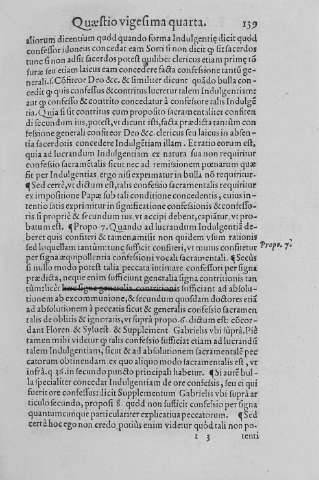 Quæstio vigesima quarta. 139
aliorum dicentium quòd quando forma Indulgentiæ dicit quòd
confessor idoneus concedat eam Sorti si non dicit qp sit sacerdos
tunc si non adsit sacerdos potest quilibet clericus etiam primę tõ
suræ seu etiam laicus eam concedere facta confessione tantũ ge-
nerali. Cõfiteor Deo &c. & similiter dicunt quãdo bulla con-
cedit qp quis confessus & contritus lucretur talem Indulgentiam
aut qp confesso & contrito concedatur à confessore talis Indulgẽ
tia. Quia si sit contritus cum proposito sacramentaliter confiten
di secundum ius, potest, vt dicunt isti, facta prædicta tantũm con
fessione generali confiteor Deo &c. clericus seu laicus in absen-
tia sacerdotis concedere Indulgẽtiam illam. Et ratio eorum est,
quia ad lucrandum Indulgentiam ex natura sua non requiritur
confessio sacramẽtalis sicut nec ad remissionem pœnarum quæ
fit per Indulgentias, ergo nisi exprimatur in bulla nõ requiritur.
¶ Sed certè, vt dictum est, talis confessio sacramentalis requiritur
ex impositione Papæ sub tali conditione concedentis, cuius in-
tentio satis exprimitur in significatione confessionis & confesso-
ris si propriè & secundum ius vt accipi debent, capiãtur, vt pro-
batum est. ¶ Propo. 7. Quando ad lucrandum Indulgentiã de-
beret quis confiteri & tamen amisit non quidem vsum rationis
sed loquelam tantùm tunc sufficit confiteri, vt mutus confitetur Propo. 7.
per signa æquipollentia confessioni vocali sacramentali. ¶ Secùs
si nullo modo potest talia peccata intimare confessori per signa
prædicta, neque enim sufficiunt generalia signa contritionis tan
tùm licèt hæc signa generalis contritionis sufficiant ad absolu-
tionem ab excommunicatione, & secundum quosdam doctores etiã
ad absolutionem à peccatis sicut & generalis confessio sacramen
talis de oblitis & ignoratis, vt suprà propo. 6. dictum est: & concor-
dant Floren & Syluest. & Supplement Gabrielis vbi suprà. Piè
tamen mihi videtur qp talis confessio sufficiat etiam ad lucrandũ
talem Indulgentiam, sicut & ad absolutionem sacramentalẽ pec-
catorum obtinendam. ex quo aliquo modo sacramentalis est, vt
infrà. q. 36. in secundo puncto principali habetur. ¶ Si autẽ bul-
la specialiter concedat Indulgentiam de ore confessis, seu ei qui
fuerit ore confessus dicit Supplementum Gabrielis vbi suprà ar-
ticulo secundo, proposi. 8. quòd non sufficit confessio per signa
quantumcunque particulariter explicatiua peccatorum. ¶ Sed
certè hoc ego non credo, potiùs enim videtur quòd tali non po-
t 3 tenti